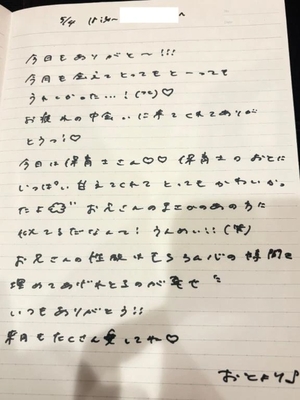 今日もありがと〜!!!
今月も会えてとってもとーっても
うれしかった…!
お疲れの中会いに来てくれてありが
とうっ!♡
今日は保育士さん♡♡ 保育士のおとに
いっぱい甘えてくれてとってもかわいか
ったよ お兄さんの
似てるだなんて! うんめい!!(笑)
お兄さんの性欲はもちろん心の隙間を
埋めてあげれるのが幸せ
いつもありがとう!!
来月もたくさん愛してね♡
おとより♪